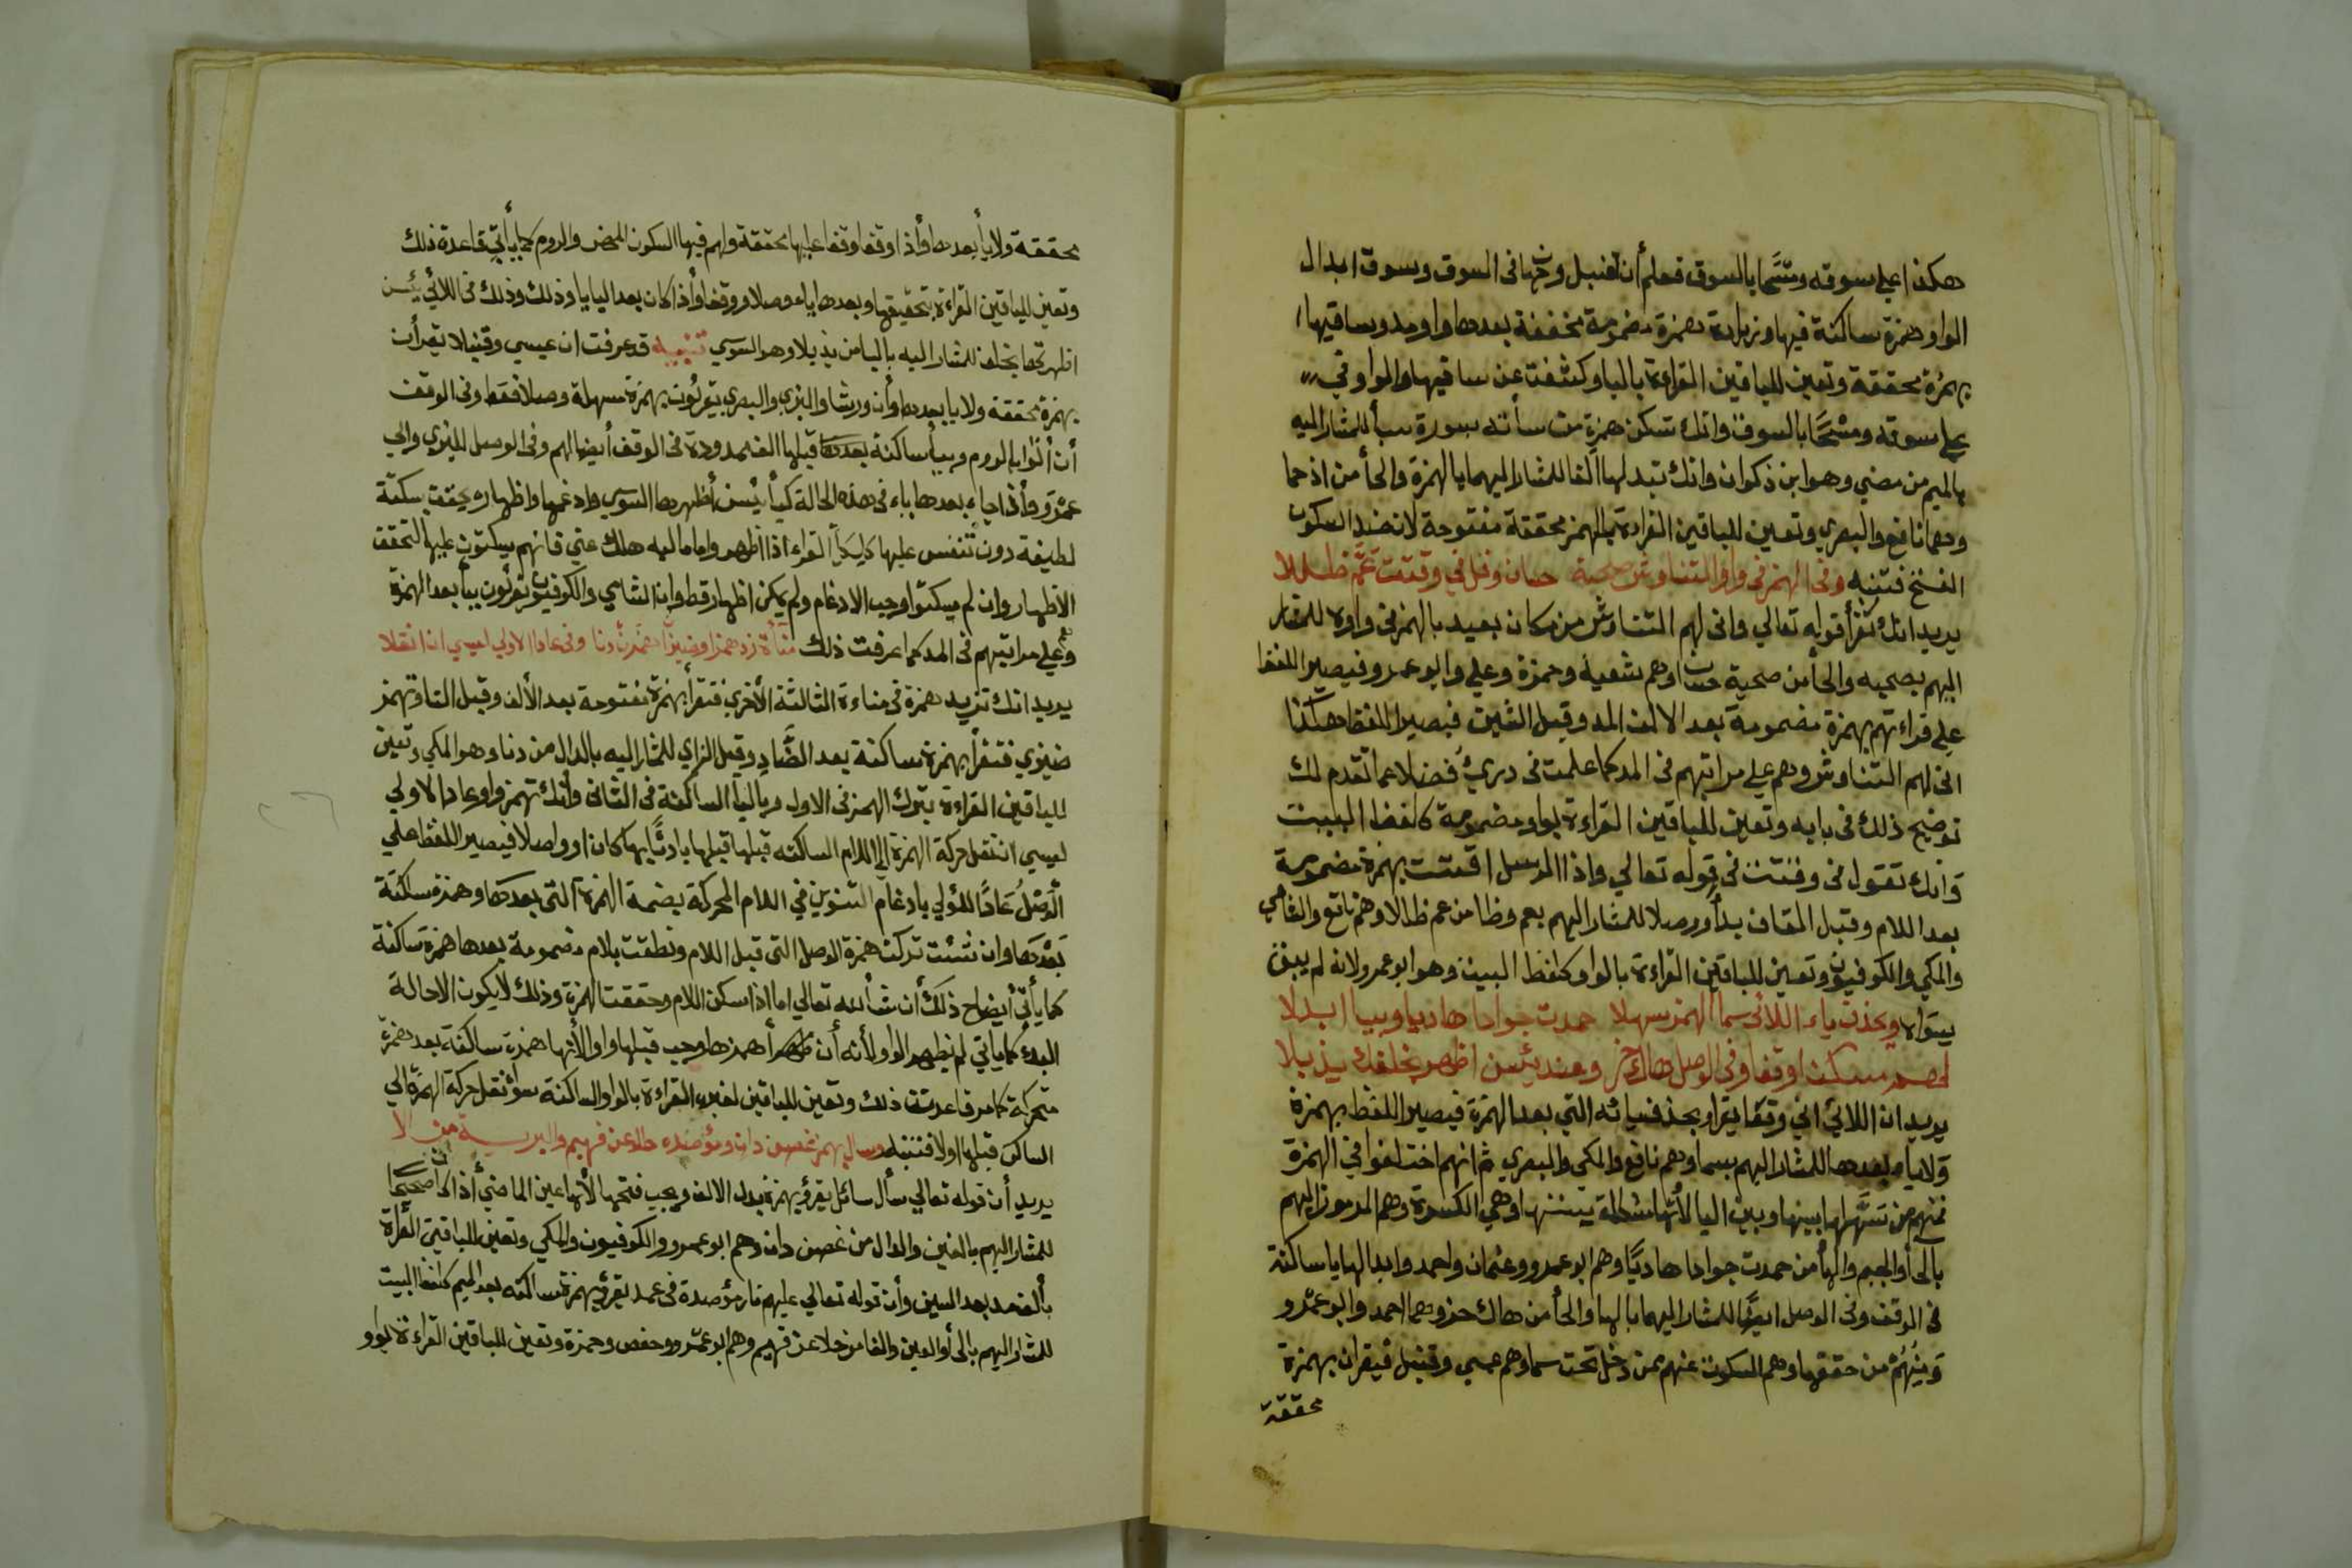 هكذا على سوقه ومسحا بالسوق فعلم أن لقنبل وجهان فى السوق وسوق ابدال
الواو همزة ساكنة فيها وزيادة همزة مضمومة مخففة بعدها واو مد وساقيها
بهمزة محققة وتعين للباقين القراءة بالباو كشفت عن ساقيها والواو في
على سوقه ومسْحًا بالسوق وانك تسكن همزة من سأته بسورة سبأ للمشار اليه
بالميم من مضي وهو ابن ذكوان وانك تبدلها الفا للمشار اليهما بالهمزة والحأ من اذ حما
وهما نافع والبصري وتعين للباقين القراءة بالهمز محققة مفتوحة لان ضد السكون
الفتخ فتنبه وفى الهمز فى واو التناوش صحبة حسان وقل فى وقتت عم ظللا
يريد انك تقرأ قوله تعالي وانى لهم التناوش من مكان بعيد بالهمز فى واوه للمشار
اليهم بصحبه والحأ من صحبة حسان وهم شعبة وحمزة وعلي وابو عمرو فيصير اللفظ
على قراءتهم بهمزة مضمومة بعد الالف المد وقبل الشين فيصير اللفظ هكذا
انى لهم التناوش وهم على مراتبهم فى المد كما علمت فى دريُ فضلا عما تقدم لك
توضيح ذلك فى بابه وتعين للباقين القراءة بواو مضمومة كلفظ البيت
وانك تقول فى وقتت فى قوله تعالي واذا الرسل اقتت بهمزة مضمومة
بعد اللام وقبل القاف بدأ ووصلا للمشار اليهم بعم وظا من عم ظالا وهم نافع والشامي
والمكي والكوفيون وتعين للباقين القراءة بالواو كلفظ البيت وهو ابو عمرو لانه لم يبق
سواه ويحذف ياء اللائى سما الهمز سهلا حمدت جوادا هاديا وبيا ابدلا
لهم مسكن اوقفا وفى الوصل هاك حز وعند يئسن اظهر بخلفك يذبلا
يريد ان اللائي اني وقعا يقرا بحذف يائه التي بعد الهمزة فيصير اللفظ بهمزة
ولا ياء بعدها للمشار اليهم بسما وهم نافع والمكي والبصري ثم انهم اختلفوا في الهمزة
فمنهم من سَهَّلها بينها وبين اليا لأنها وهي الكسرة وهم المرموز اليهم
بالحأ والجيم والهأ من حمدت جوادا هاديًا وهم ابو عمرو وعثمان واحمد وابدالها يا ساكنة
فى الوقف وفى الوصل ايضًا للمشار اليهما بالها والحأ من هاك حز وهما احمد وابو عمرو
وَمِنْهُمْ من حققها وهم المسكوت عنهم ممن دخل تحت سما وهم عيسي وقنبل فيقران بهمزة
محققة
محققة ولا يأ بعدها وأذا وقفا وقفا عليها محققة ولهم فيها السكون المحض والروم كما يأتي قاعدة ذلك
وتعين للباقين القراءة بتحقيقها وبعدها ياء وصلا ووقفا وأذا كان بعد اليا يا وذلك وذلك فى اللائي يئسن
اظهرتها بخلف للمشار اليه باليا من يذبلا وهو السوسي تنبيه قد عرفت ان عيسي وقنبلا يقرأن
بهمزة محققة ولا يا بعدها وأن ورشا والبزي والبصري يقرئون بهمزة مسهلة وصلا فقط وفى الوقف
أن أتوا بالروم وبيأ ساكنة بعدها قبلها الف ممدودة فى الوقف أيضا لهم وفى الوصل للبزي وابي
عمرو وأذا جاء بعدها ياء فى هذه الحالة كيأ يئسن أظهرها السوسي وادغمها واظهاره يحقق بسكتة
لطيفة دون تنفس عليها القراء اذا اظهروا ماليه هلك عني فانهم يسكتون عليها لتحقق
الاظهار وان لم يسكتوا وجب الادغام ولم يمكن اظهار قط وان الشامي والكوفيون يقرئون بيأ بعد الهمزة
وهم على مراتبهم فى المد كما عرفت ذلك مناة زد همزا وضيزا همز نادنا وفى عادا الاولي لعيسي ان انقلا
يريد انك تزيد همزة فى مناءة الثالثة الأخري فتقرأ بهمزة مفتوحة بعد الألف وقبل التا وتهمز
ضيزي فتقرأ بهمزة ساكنة بعد الضَّادِ وقبل الزاي للمشار اليه بالدال من دنا وهو المكي وتعين
للباقين القراءة بترك الهمز فى الاول وباليا الساكنة فى الثانى وأنك تهمز واو عادا لاولي
لعيسي ان تنقل حركة الهمزة الى اللام الساكنه قبلها قبلها بادئًا بها كان او واصلا فيصير اللفظ على
الْوَصْلُ عَادًا للؤلي بادغام التنوين في اللام المحركة بضمة الهمزة التى بعدها وهمزة ساكنة
بَعْدَهَا وان شئت تركت همزة الوصل التى قبل اللام ونطقت بلام مضمومة بعدها همزة ساكنة
كما يأتي أيضاح ذلك أن شأ الله تعالي اما اذا سكن اللام وحققت الهمزة وذلك لا يكون الا حالة
البدئ كما ياتي لم يظهر الواو لأنه أن ظهر أ همزها وجب قبلها واو الأنها همزة ساكنة بعد همزة
متحركة كما مر قاعدت ذلك وتعين للباقين لغيره القراءة بالواو الساكنة سوأ نقل حركة الهمزة الي
الساكن قبلها اولا فتنبه وسال بهمز غصن دان ومؤصده حلا عن فهيم والبرية من الا
يريد أن قوله تعالي سأل سائل يقرؤ بهمزة بدل الالف ويجب فتحها لأنها عين الماضي أذا كان صحيحا
للمشار اليهم بالغين والدال من غصن دان وهم ابو عمرو والكوفيون والمكي وتعين للباقين القراة
بألف مد بعد السين وأن قوله تعالي عليهم نار مؤصدة فى عمد يقرؤ بهمزة ساكنه بعد الميم كلفظ البيت
للمشار اليهم بالحأ والعين والفا من حلا عن فهيم وهم ابو عمرو وحفص وحمزة وتعين للباقين القراءة بواو